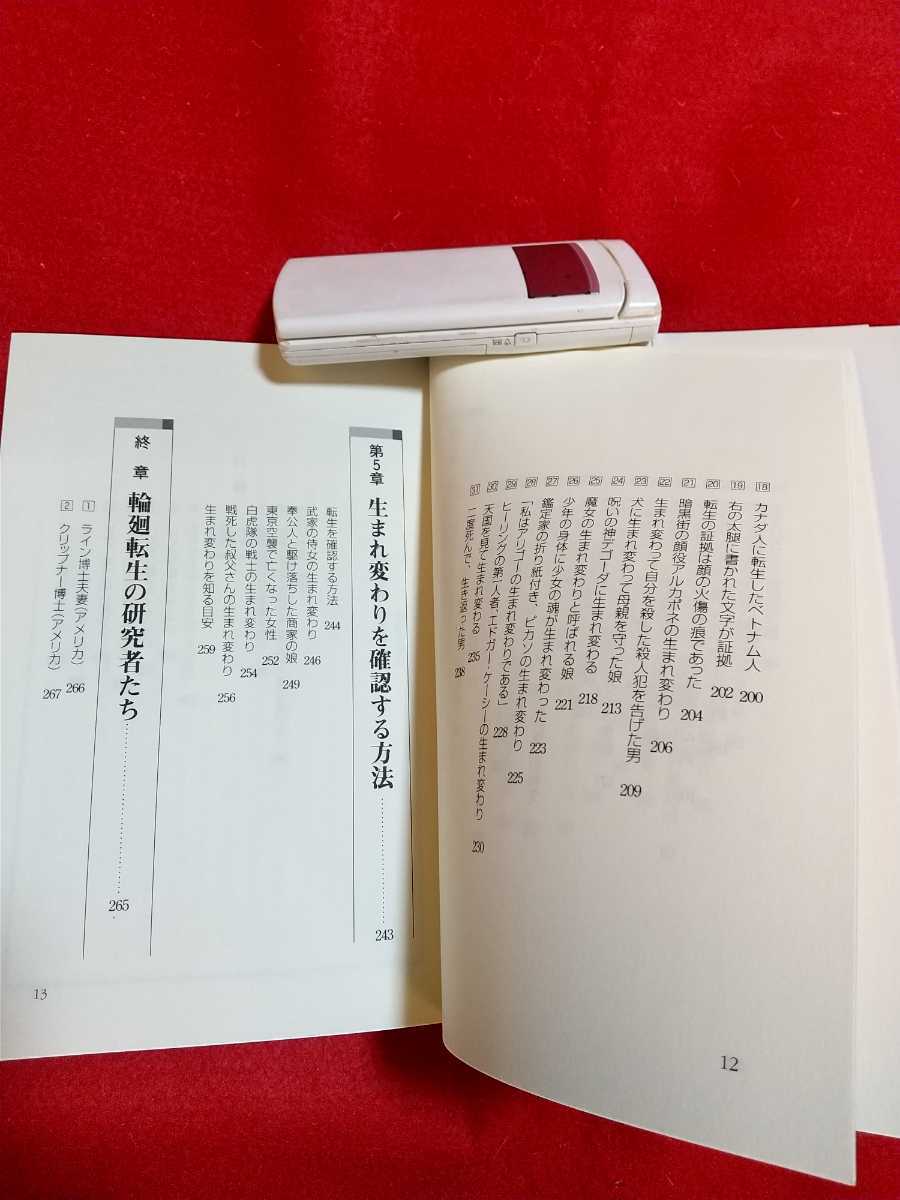 18 カナダ人に転生したベトナム人 200
19 右の太腿に書かれた文字が証拠 202
20 転生の証拠は顔の火傷の痕であった 204
21 暗黒街の顔役アルカポネの生まれ変わり 206
22 生まれ変わって自分を殺した殺人犯を告げた男 209
23 犬に生まれ変わって母親を守った娘 213
24 呪いの神テゴーダに生まれ変わる 218
25 魔女の生まれ変わりと呼ばれる娘 221
26 少年の身体に少女の魂が生まれ変わった 223
27 鑑定家の折り紙付き、ピカソの生まれ変わり 225
28 「私はアリゴーの生まれ変わりである」 228
29 ヒーリングの第一人者、エドガー・ケーシーの生まれ変わり 230
30 天国を見て生まれ変わる 235
31 二度死んで、生き返った男 238
12
第5章 生まれ変わりを確認する方法 243
転生を確認する方法 244
武家の侍女の生まれ変わり 246
奉公人と駆け落ちした商家の娘 249
東京空襲で亡くなった女性 252
白虎隊の戦士の生まれ変わり 254
戦死した叔父さんの生まれ変わり 256
生まれ変わりを知る目安 259
終章 輪廻転生の研究者たち 265
1 ライン博士夫妻(アメリカ) 266
2 クリップナー博士(アメリカ) 267
13